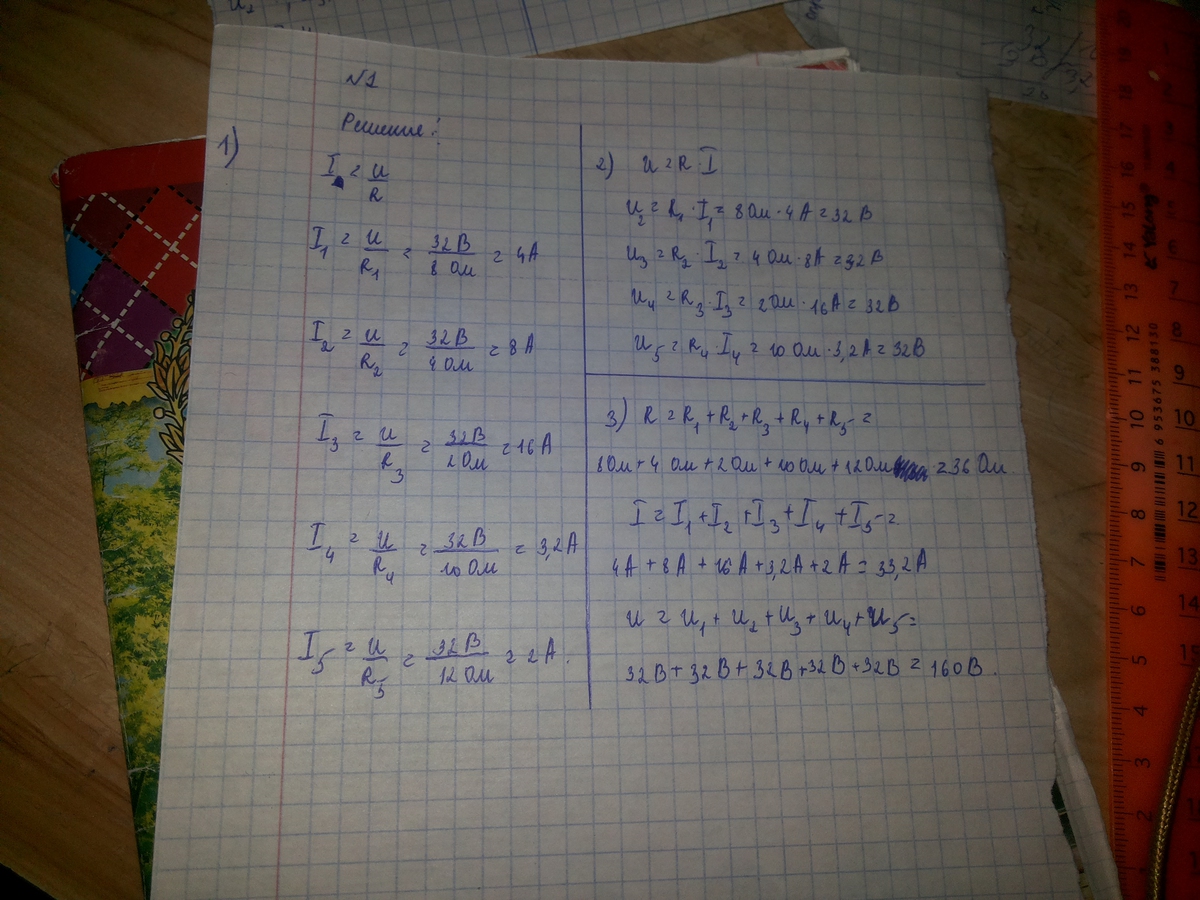 №1
Решение:
1)
I = U/R
I₁ = U/R₁ = 32В/8 Ом = 4А
I₂ = U/R₂ = 32В/4 Ом = 8А
I₃ = U/R₃ = 32В/2 Ом = 16А
I₄ = U/R₄ = 32В/10 Ом = 3,2А
I₅ = U/R₅ = 32В/12 Ом = 2А.
2) U = R · I
U₂ = R₁ · I₁ = 8 Ом · 4А = 32В
U₃ = R₂ · I₂ = 4 Ом · 8А = 32В
U₄ = R₃ · I₃ = 2 Ом · 16А = 32В
U₅ = R₄ · I₄ = 10 Ом · 3,2А = 32В
3) R = R₁ + R₂ + R₃ + R₄ + R₅ =
8 Ом + 4 Ом + 2 Ом + 10 Ом + 12 Ом = 36 Ом
I = I₁ + I₂ + I₃ + I₄ + I₅ =
4А + 8А + 16А + 3,2А + 2А = 33,2А
U = U₁ + U₂ + U₃ + U₄ + U₅ =
32В + 32В + 32В + 32В + 32В = 160В.
6 953675 388130